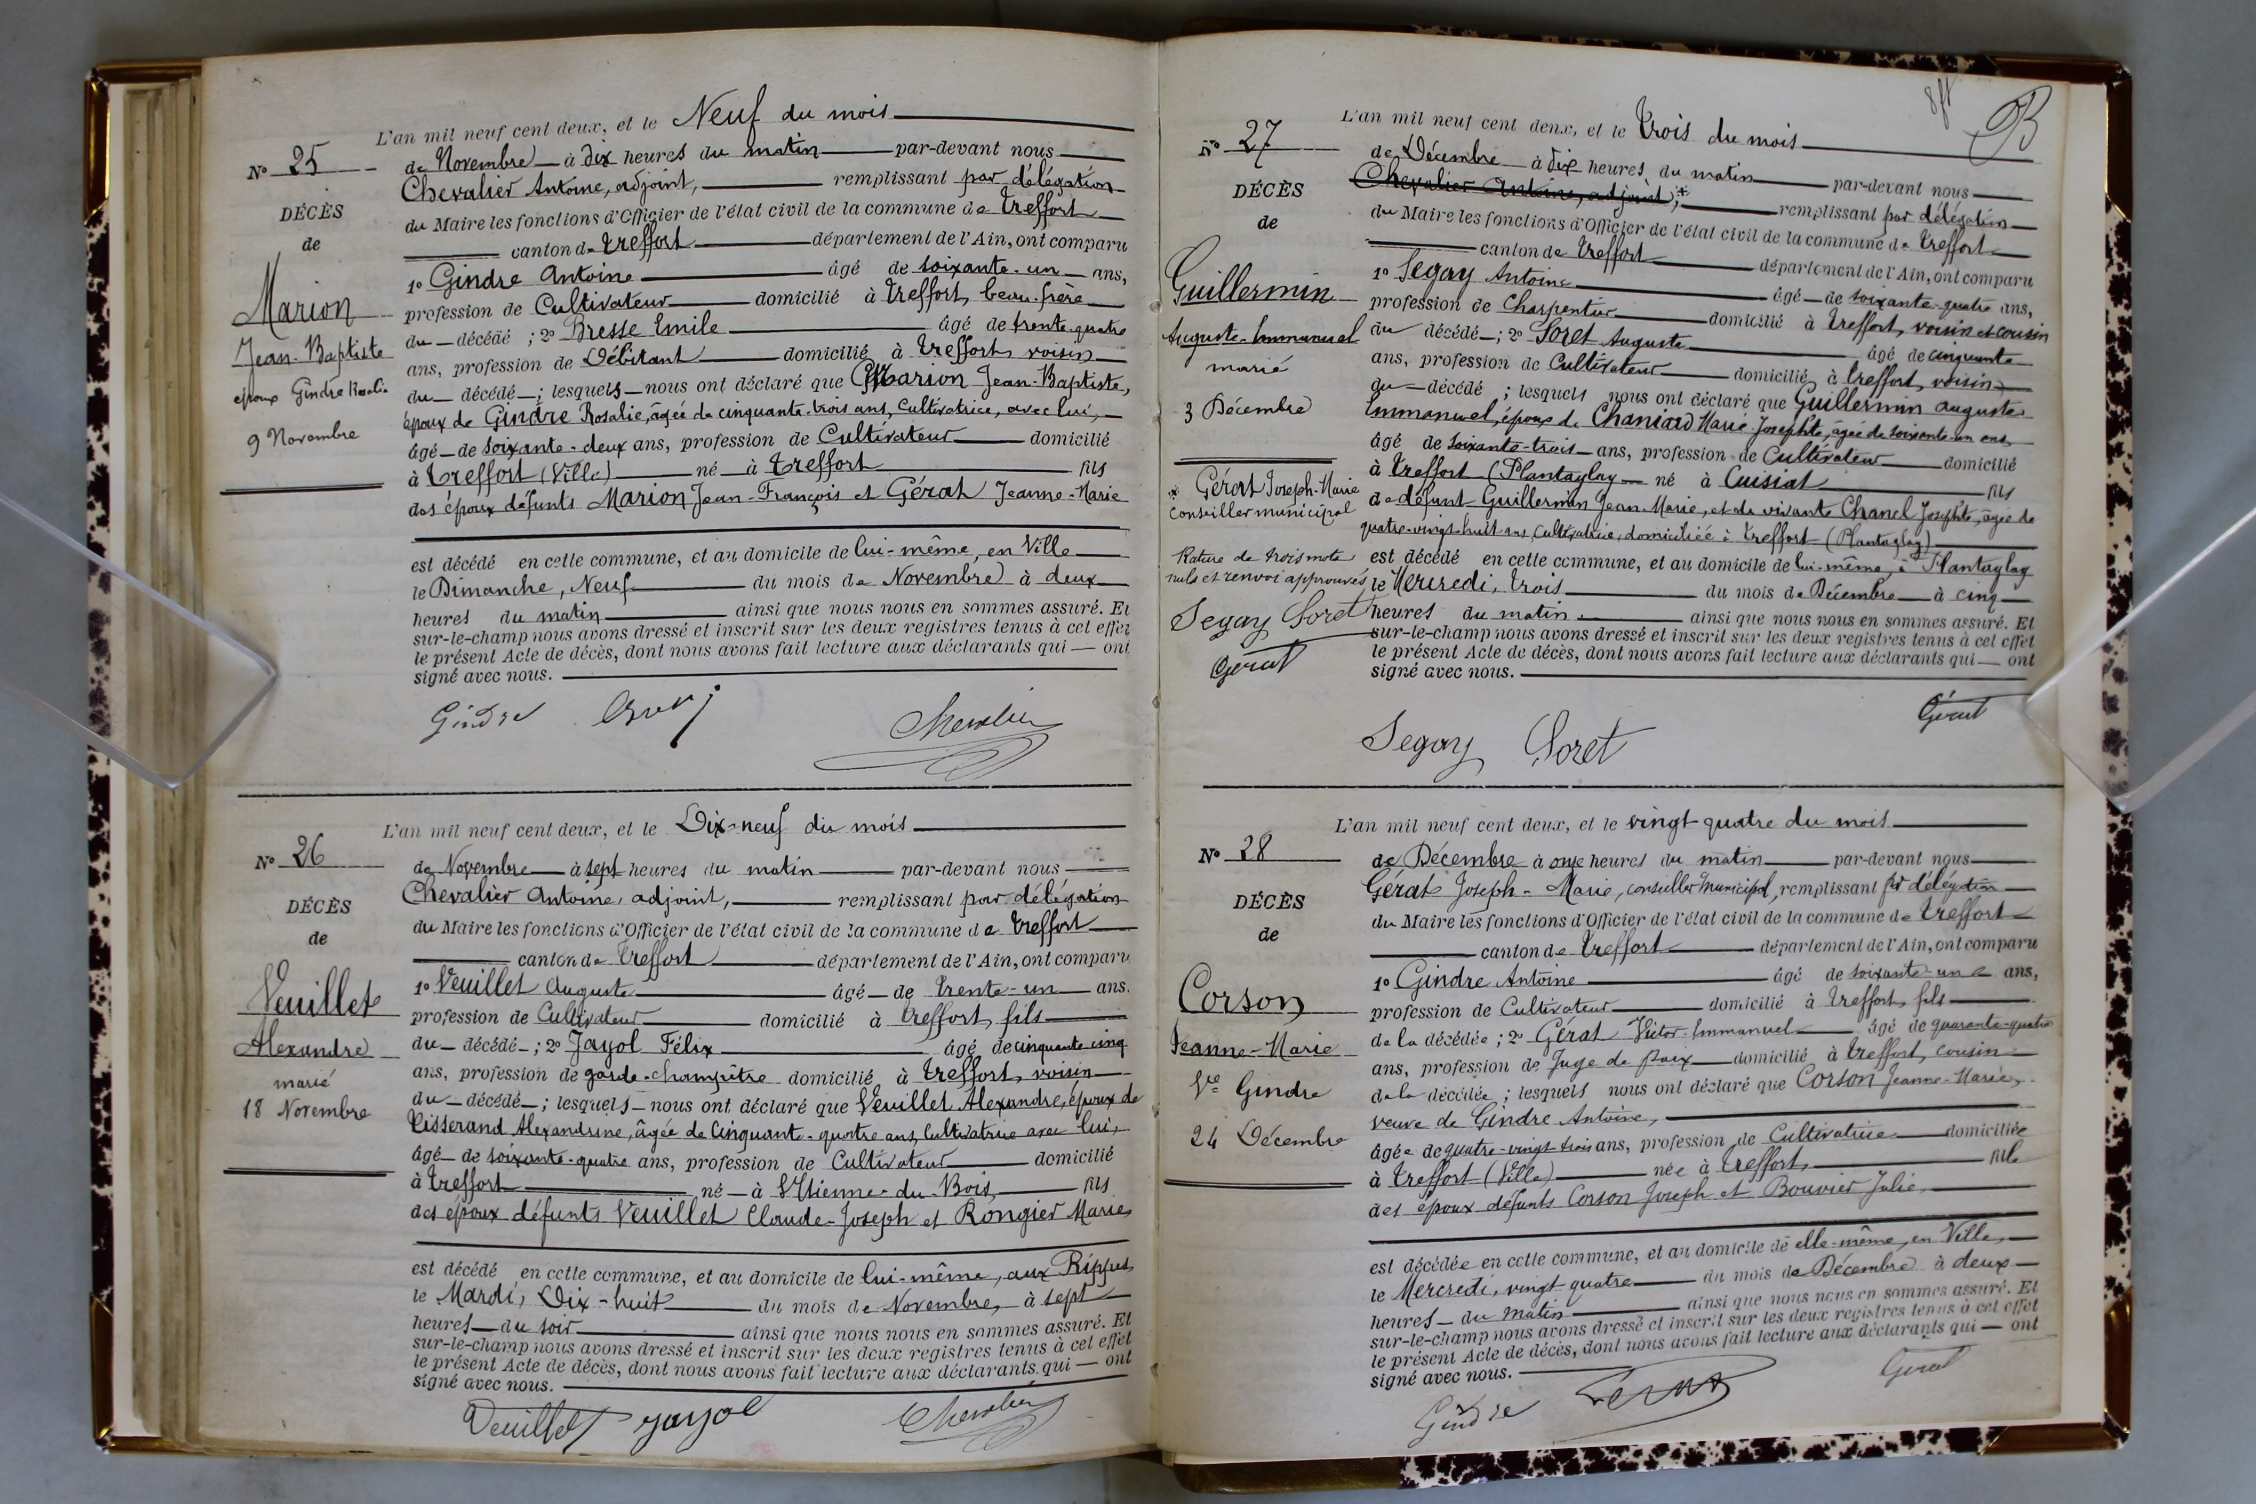 L'an mil neuf cent deux, et le Neuf du mois
N° 25
de Novembre à dix heures du matin par-devant nous
Chevalier Antoine, adjoint, remplissant par délégation
DÉCÈS
du Maire les fonctions d'Officier de l'état civil de la commune de Treffort
de
canton de Treffort département de l'Ain, ont comparu
Marion
Jean-Baptiste
époux Gindre Rosalie
9 Novembre
1° Gindre Antoine âgé de soixante-un ans,
profession de Cultivateur domicilié à Treffort, beau-frère
du décédé ; 2° Bresse Emile âgé de trente-quatre
ans, profession de Débitant domicilié à Treffort, voisin
du décédé ; lesquels nous ont déclaré que Marion Jean-Baptiste,
époux de Gindre Rosalie, âgée de cinquante-trois ans, Cultivatrice, avec lui,
âgé de soixante-deux ans, profession de Cultivateur domicilié
à Treffort (Ville) né à Treffort fils
des époux défunts Marion Jean-François et Gérat Jeanne-Marie
est décédé en cette commune, et au domicile de lui-même, en Ville
le Dimanche, Neuf du mois de Novembre à deux
heures du matin ainsi que nous nous en sommes assuré. Et
sur-le-champ nous avons dressé et inscrit sur les deux registres tenus à cet effet
le présent Acte de décès, dont nous avons fait lecture aux déclarants qui ont
signé avec nous.
Gindre Chevalier
L'an mil neuf cent deux, et le Dix-neuf du mois
N° 26
de Novembre à sept heures du matin par-devant nous
Chevalier Antoine, adjoint, remplissant par délégation
DÉCÈS
du Maire les fonctions d'Officier de l'état civil de la commune de Treffort
de
canton de Treffort département de l'Ain, ont comparu
Veuillet
Alexandre
marié
18 Novembre
1° Veuillet Auguste âgé de trente-un ans.
profession de Cultivateur domicilié à Treffort, fils
du décédé ; 2° Jayol Félix âgé de cinquante-cinq
ans, profession de garde-champêtre domicilié à Treffort, voisin
du décédé ; lesquels nous ont déclaré que Veuillet Alexandre, époux de
Tisserand Alexandrine, âgée de Cinquante-quatre ans, Cultivatrice avec lui,
âgé de soixante-quatre ans, profession de Cultivateur domicilié
à Treffort né à St Etienne-du-Bois, fils
des époux défunts Veuillet Claude-Joseph et Rongier Marie,
est décédé en cette commune, et au domicile de lui-même, aux Rippes,
le Mardi, Dix-huit du mois de Novembre, à sept
heures du soir ainsi que nous nous en sommes assuré. Et
sur-le-champ nous avons dressé et inscrit sur les deux registres tenus à cet effet
le présent Acte de décès, dont nous avons fait lecture aux déclarants qui ont
signé avec nous.
Veuillet Jayol Chevalier
B
L'an mil neuf cent deux, et le trois du mois
N° 27
de Décembre à dix heures du matin par-devant nous
Chevalier Antoine, adjoint, remplissant par délégation
DÉCÈS
du Maire les fonctions d'Officier de l'état civil de la commune de Treffort
de
canton de Treffort département de l'Ain, ont comparu
Guillermin
Auguste-Emmanuel
marié
3 Décembre
1° Segay Antoine âgé de soixante-quatre ans,
profession de Charpentier domicilié à Treffort, voisin et cousin
du décédé ; 2° Soret Auguste âgé de cinquante
ans, profession de Cultivateur domicilié à Treffort, voisin
du décédé ; lesquels nous ont déclaré que Guillermin Auguste
Emmanuel, époux de Chaniard Marie-Josephte, âgée de soixante-un ans,
âgé de soixante-trois ans, profession de Cultivateur domicilié
à Treffort (Plantaglay né à Cuisiat fils
de défunt Guillermin Jean-Marie, et de vivante Chanel Josephte, âgée de
quatre-vingt-huit ans, Cultivatrice, domiciliée à Treffort (Plantaglay)
Gérat Joseph-Marie
conseiller municipal
Rature de trois mots
nuls et renvoi approuvés
Segay Soret
Gérat
est décédé en cette commune, et au domicile de lui-même, à Plantaglay
le Mercredi, trois du mois de Décembre à cinq
heures du matin ainsi que nous nous en sommes assuré. Et
sur-le-champ nous avons dressé et inscrit sur les deux registres tenus à cet effet
le présent Acte de décès, dont nous avons fait lecture aux déclarants qui ont
signé avec nous.
Gérat
Segay Soret
L'an mil neuf cent deux, et le vingt-quatre du mois
N° 28
de Décembre à onze heures du matin par-devant nous
Gérat Joseph-Marie, conseiller municipal, remplissant par délégation
DÉCÈS
du Maire les fonctions d'Officier de l'état civil de la commune de Treffort
de
canton de Treffort département de l'Ain, ont comparu
Corson
Jeanne-Marie
Vve Gindre
24 Décembre
1° Gindre Antoine âgé de soixante-un ans,
profession de Cultivateur domicilié à Treffort, fils
de la décédée ; 2° Gérat Victor-Emmanuel âgé de quarante-quatre
ans, profession de Juge de paix domicilié à Treffort, cousin
de la décédée ; lesquels nous ont déclaré que Corson Jeanne-Marie,
veuve de Gindre Antoine,
âgée de quatre-vingt-trois ans, profession de Cultivatrice domiciliée
à Treffort (Ville) née à Treffort, fille
des époux défunts Corson Joseph et Bouvier Julie,
est décédée en cette commune, et au domicile de elle-même, en Ville,
le Mercredi, vingt-quatre du mois de Décembre à deux
heures du matin ainsi que nous nous en sommes assuré. Et
sur-le-champ nous avons dressé et inscrit sur les deux registres tenus à cet effet
le présent Acte de décès, dont nous avons fait lecture aux déclarants qui ont
signé avec nous.
Gindre Gérat Gérat